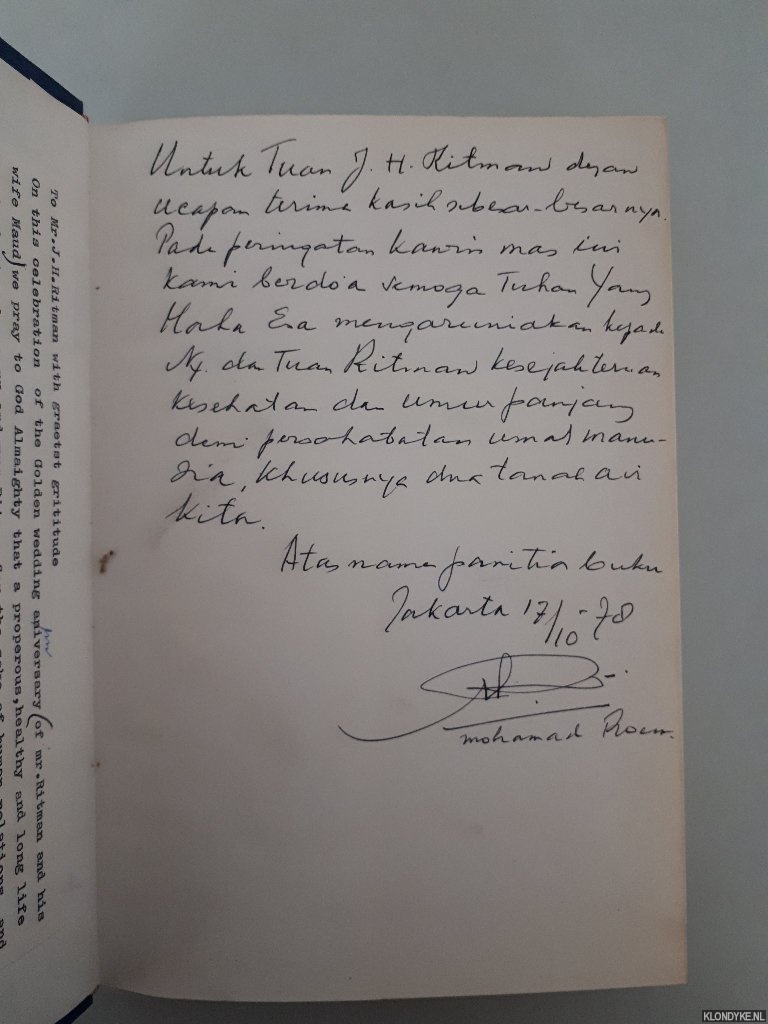 To Mr.J.H.Ritman with graetst grititude
On this celebration of the Golden wedding aniversary (of mr.Ritman and his
wife Maud) we pray to God Almaighty that a properous,healthy and long life
for the sake of human relations and
Untuk Tuan J. H. Ritman dgan
ucapan terima kasih sebesar-besarnya.
Pada peringatan kawin mas ini
kami berdo'a semoga Tuhan Yang
Maha Esa mengaruniakan kepada
Ny. dan Tuan Ritman kesejahteraan
kesehatan dan umur panjang
demi persahabatan umat manu-
sia, khususnya dua tanah air
kita.
Atas nama panitia buku
Jakarta 17/10-78
mohamad Roem.
KLONDYKE.NL